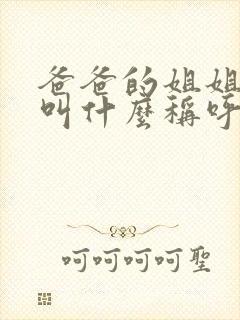 爸爸的姐姐
叫什麼稱呼
呵呵呵呵聖